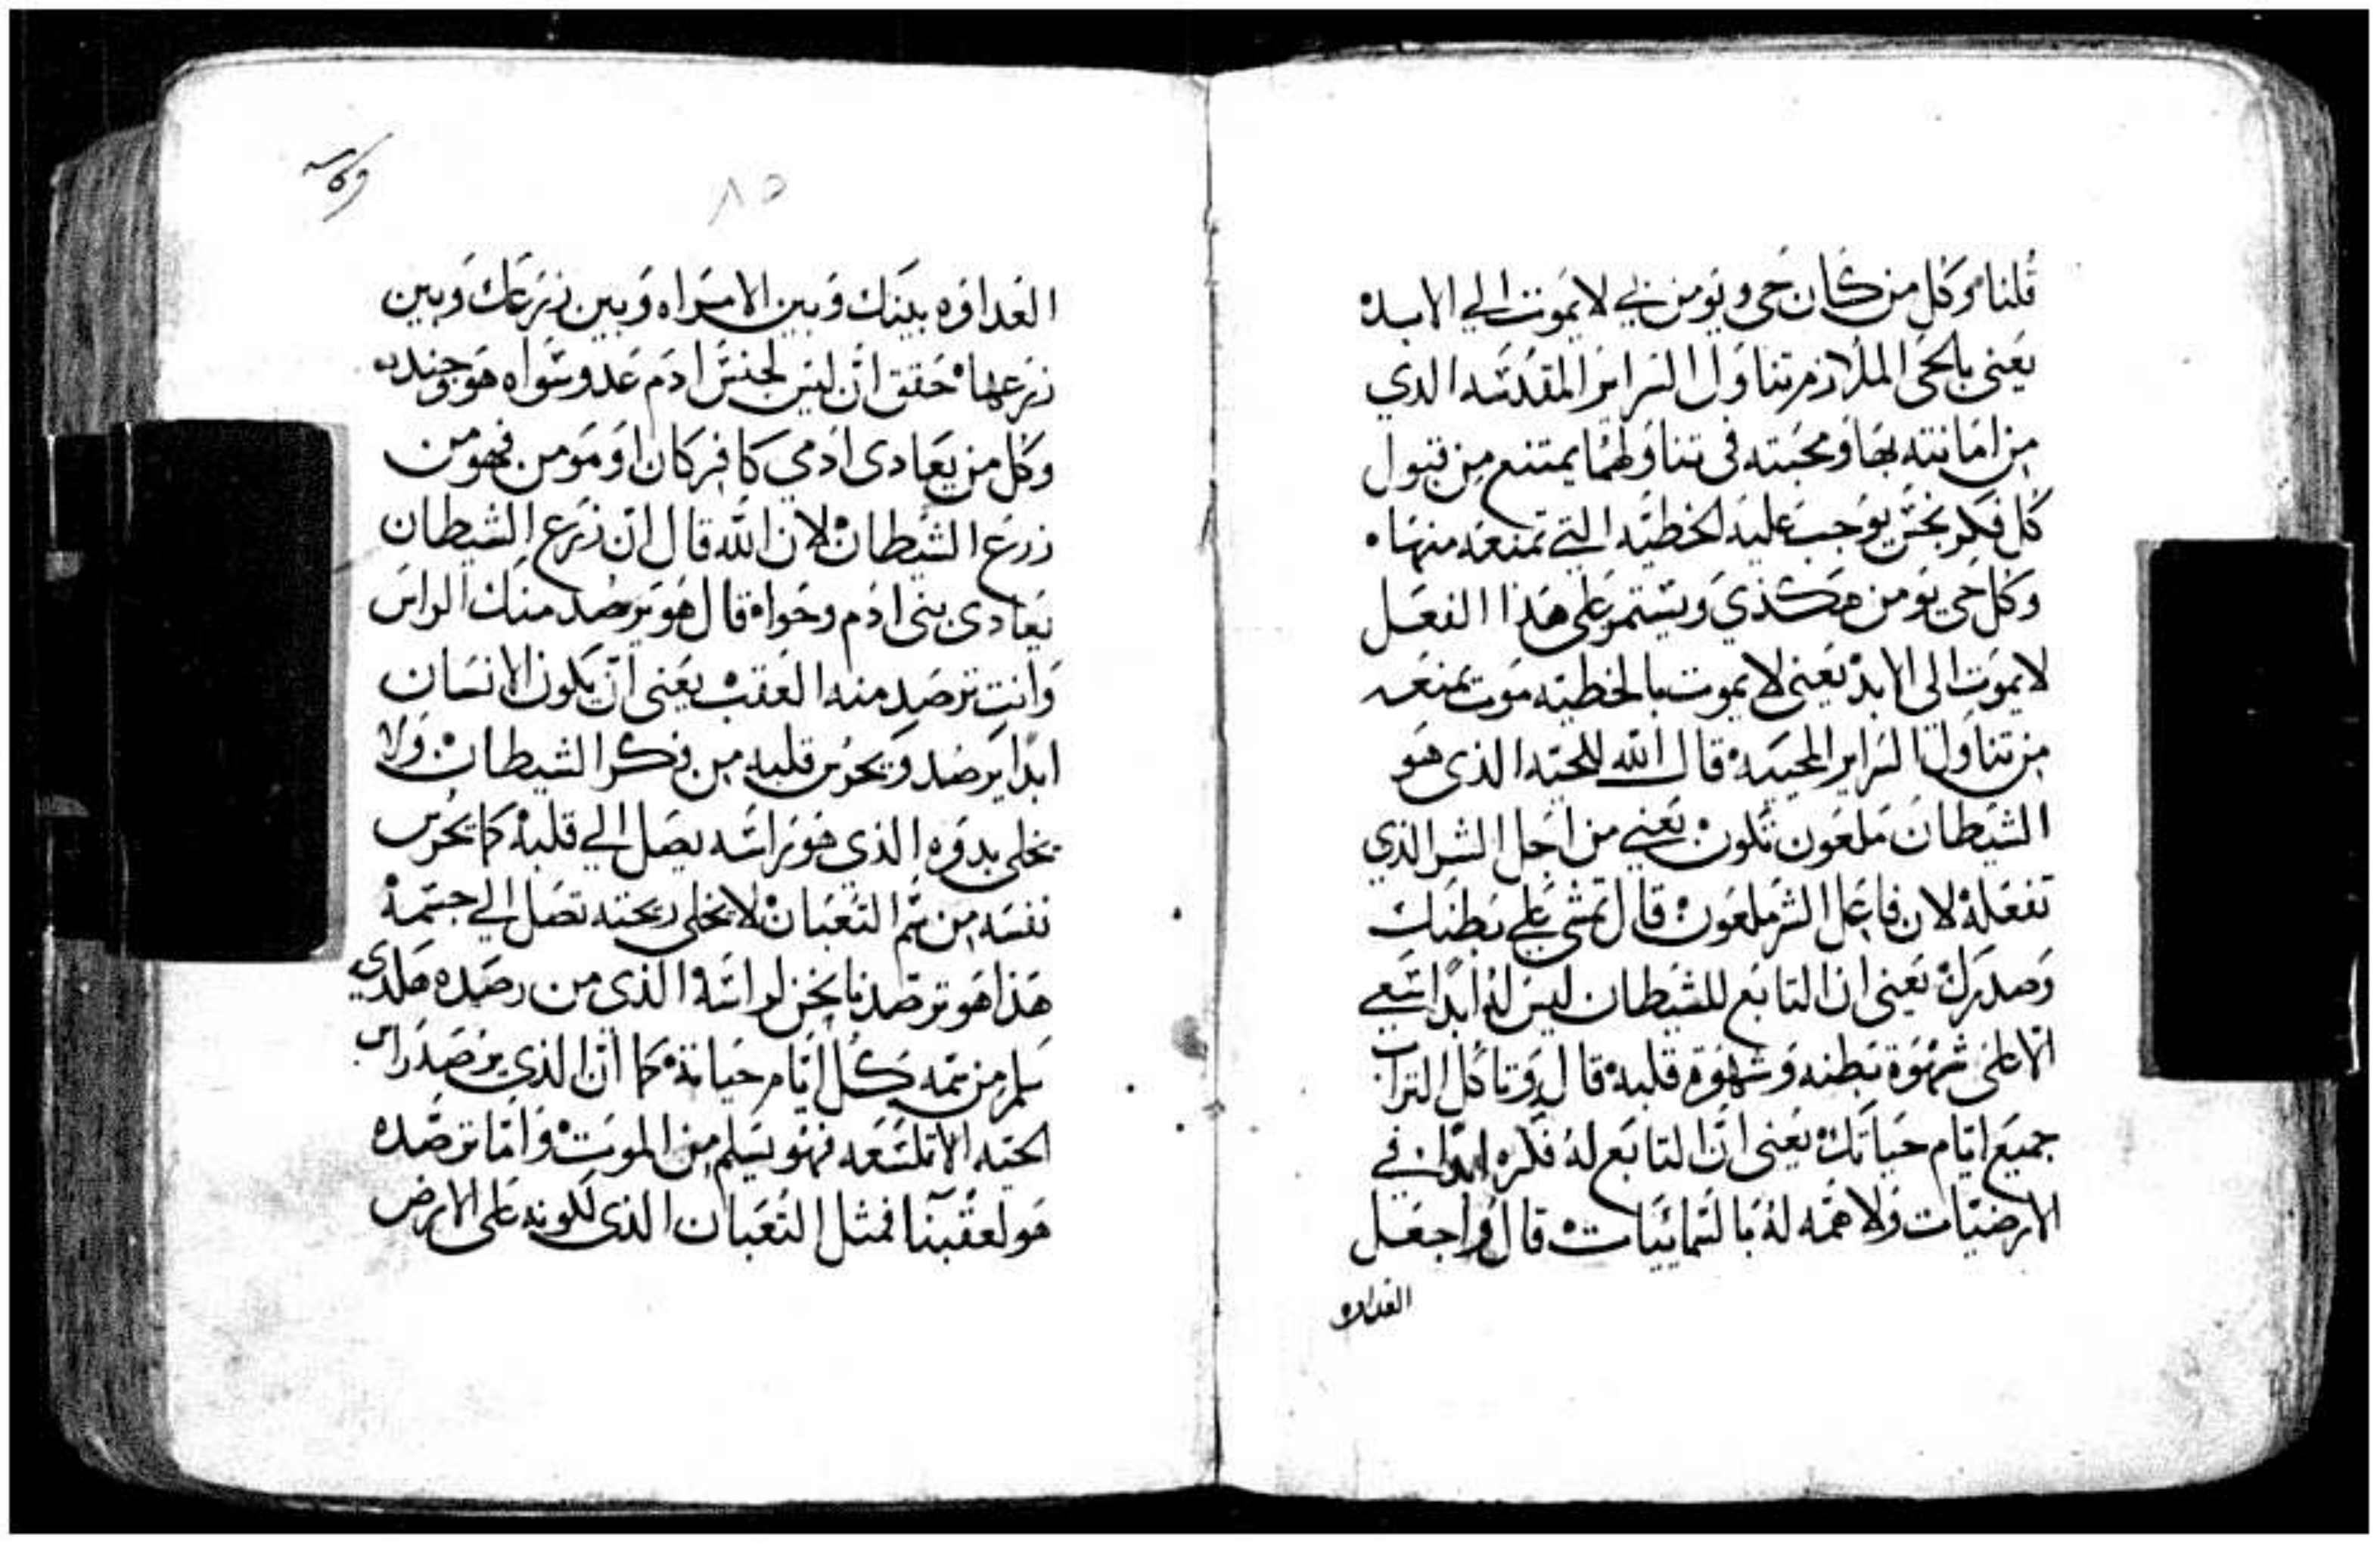 قلناه وكل من كان حي ويومن بي لا يموت الي الابده
يعني بالحي الملازم تناول السراير المقدسه الذي
من امانته بها ومحبته في تناولهما يمتنع من قبول
كل فكر نجس يوجب عليه الخطيه التي تمنعه منها ه
وكل حي يومن هكذي ويستمر علي هذا الفعل
لا يموت الي الابد يعني لا يموت بالخطيه موت يمنعه
من تناول السراير المحييه قال الله للحيه الذي هو
الشيطان ملعون تكون يعني من اجل الشر الذي
تفعله لان فاعل الشر ملعون قال تمشي علي بطنك
وصدرك يعني ان التابع للشيطان ليس له ابدا سعي
الا علي شهوة بطنه وشهوة قلبه قال وتاكل التراب
جميع ايام حياتك يعني ان التابع له فكره ابدا في
الارضيات ولا همه له بالسمائيات قال واجعل
العداوه
٨٥
العداوه بينك وبين الامراه وبين زرعك وبين
زرعها حقق ان ليس لجنس ادم عدو سواه هو وجنده
وكل من يعادي ادمي كافر كان او مومن فهو من
زرع الشيطان لان الله قال ان زرع الشيطان
يعادي بني ادم وحواه قال هو يرصد منك الراس
وانت ترصد منه العقب يعني ان يكون الانسان
ابدا يرصد ويحرس قلبه من فكر الشيطان ولا
يخلي بدوه الذي هو راسه يصل الي قلبه كما يحرس
نفسه من سم الثعبان لا يخلي ريحته تصل الي جسمه
هذا هو ترصدنا نحن لراسه الذي من رصده هكدي
سلم من سمه كل ايام حياته كما ان الذي يرصد راس
الحيه الا تلسعه فهو يسلم من الموت واما ترصده
هو لعقبنا فمثل الثعبان الذي لكونه علي الارض